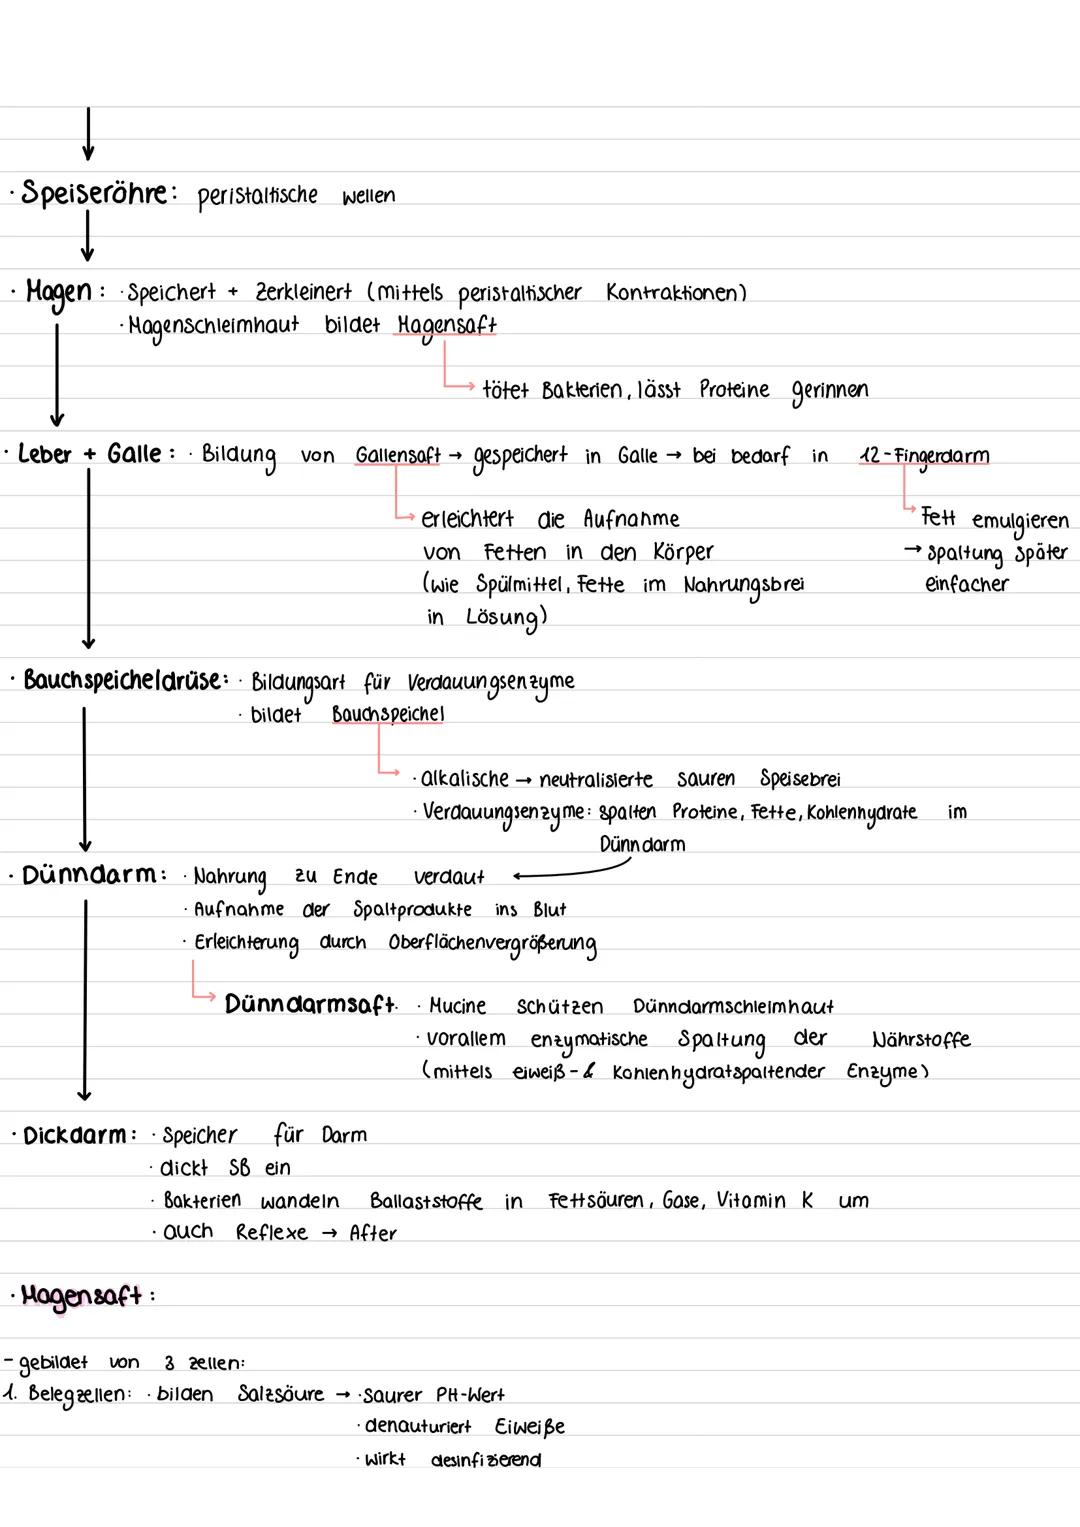 · Speiseröhre: peristaltische wellen
· Magen: · Speichert + Zerkleinert (mittels peristaltischer Kontraktionen)
· Magenschleimhaut bildet Magensaft
→ tötet Bakterien, lässt Proteine gerinnen
· Leber + Galle: · Bildung von Gallensaft → gespeichert in Galle → bei bedarf in 12-Fingerdarm
→ erleichtert die Aufnahme
von Fetten in den Körper
(wie Spülmittel, Fette im Nahrungsbrei
in Lösung)
→ Fett emulgieren
→ Spaltung später
einfacher
· Bauchspeicheldrüse: · Bildungsart für Verdauungsenzyme
· bildet Bauchspeichel
→ · alkalische → neutralisierte sauren Speisebrei
· Verdauungsenzyme: spalten Proteine, Fette, Kohlenhydrate im
Dünndarm
· Dünndarm: · Nahrung zu Ende verdaut ←
· Aufnahme der Spaltprodukte ins Blut
· Erleichterung durch Oberflächenvergrößerung
→ Dünndarmsaft. · Mucine schützen Dünndarmschleimhaut
· vorallem enzymatische Spaltung der Nährstoffe
(mittels eiweiß- & Kohlenhydratspaltender Enzyme)
· Dickdarm: · Speicher für Darm
· dickt SB ein
· Bakterien wandeln Ballaststoffe in Fettsäuren, Gase, Vitamin K um
· auch Reflexe → After
· Magensaft:
- gebildet von 3 zellen:
1. Belegzellen: · bilden Salzsäure → · saurer PH-Wert
· denauturiert Eiweiße
· wirkt desinfizierend